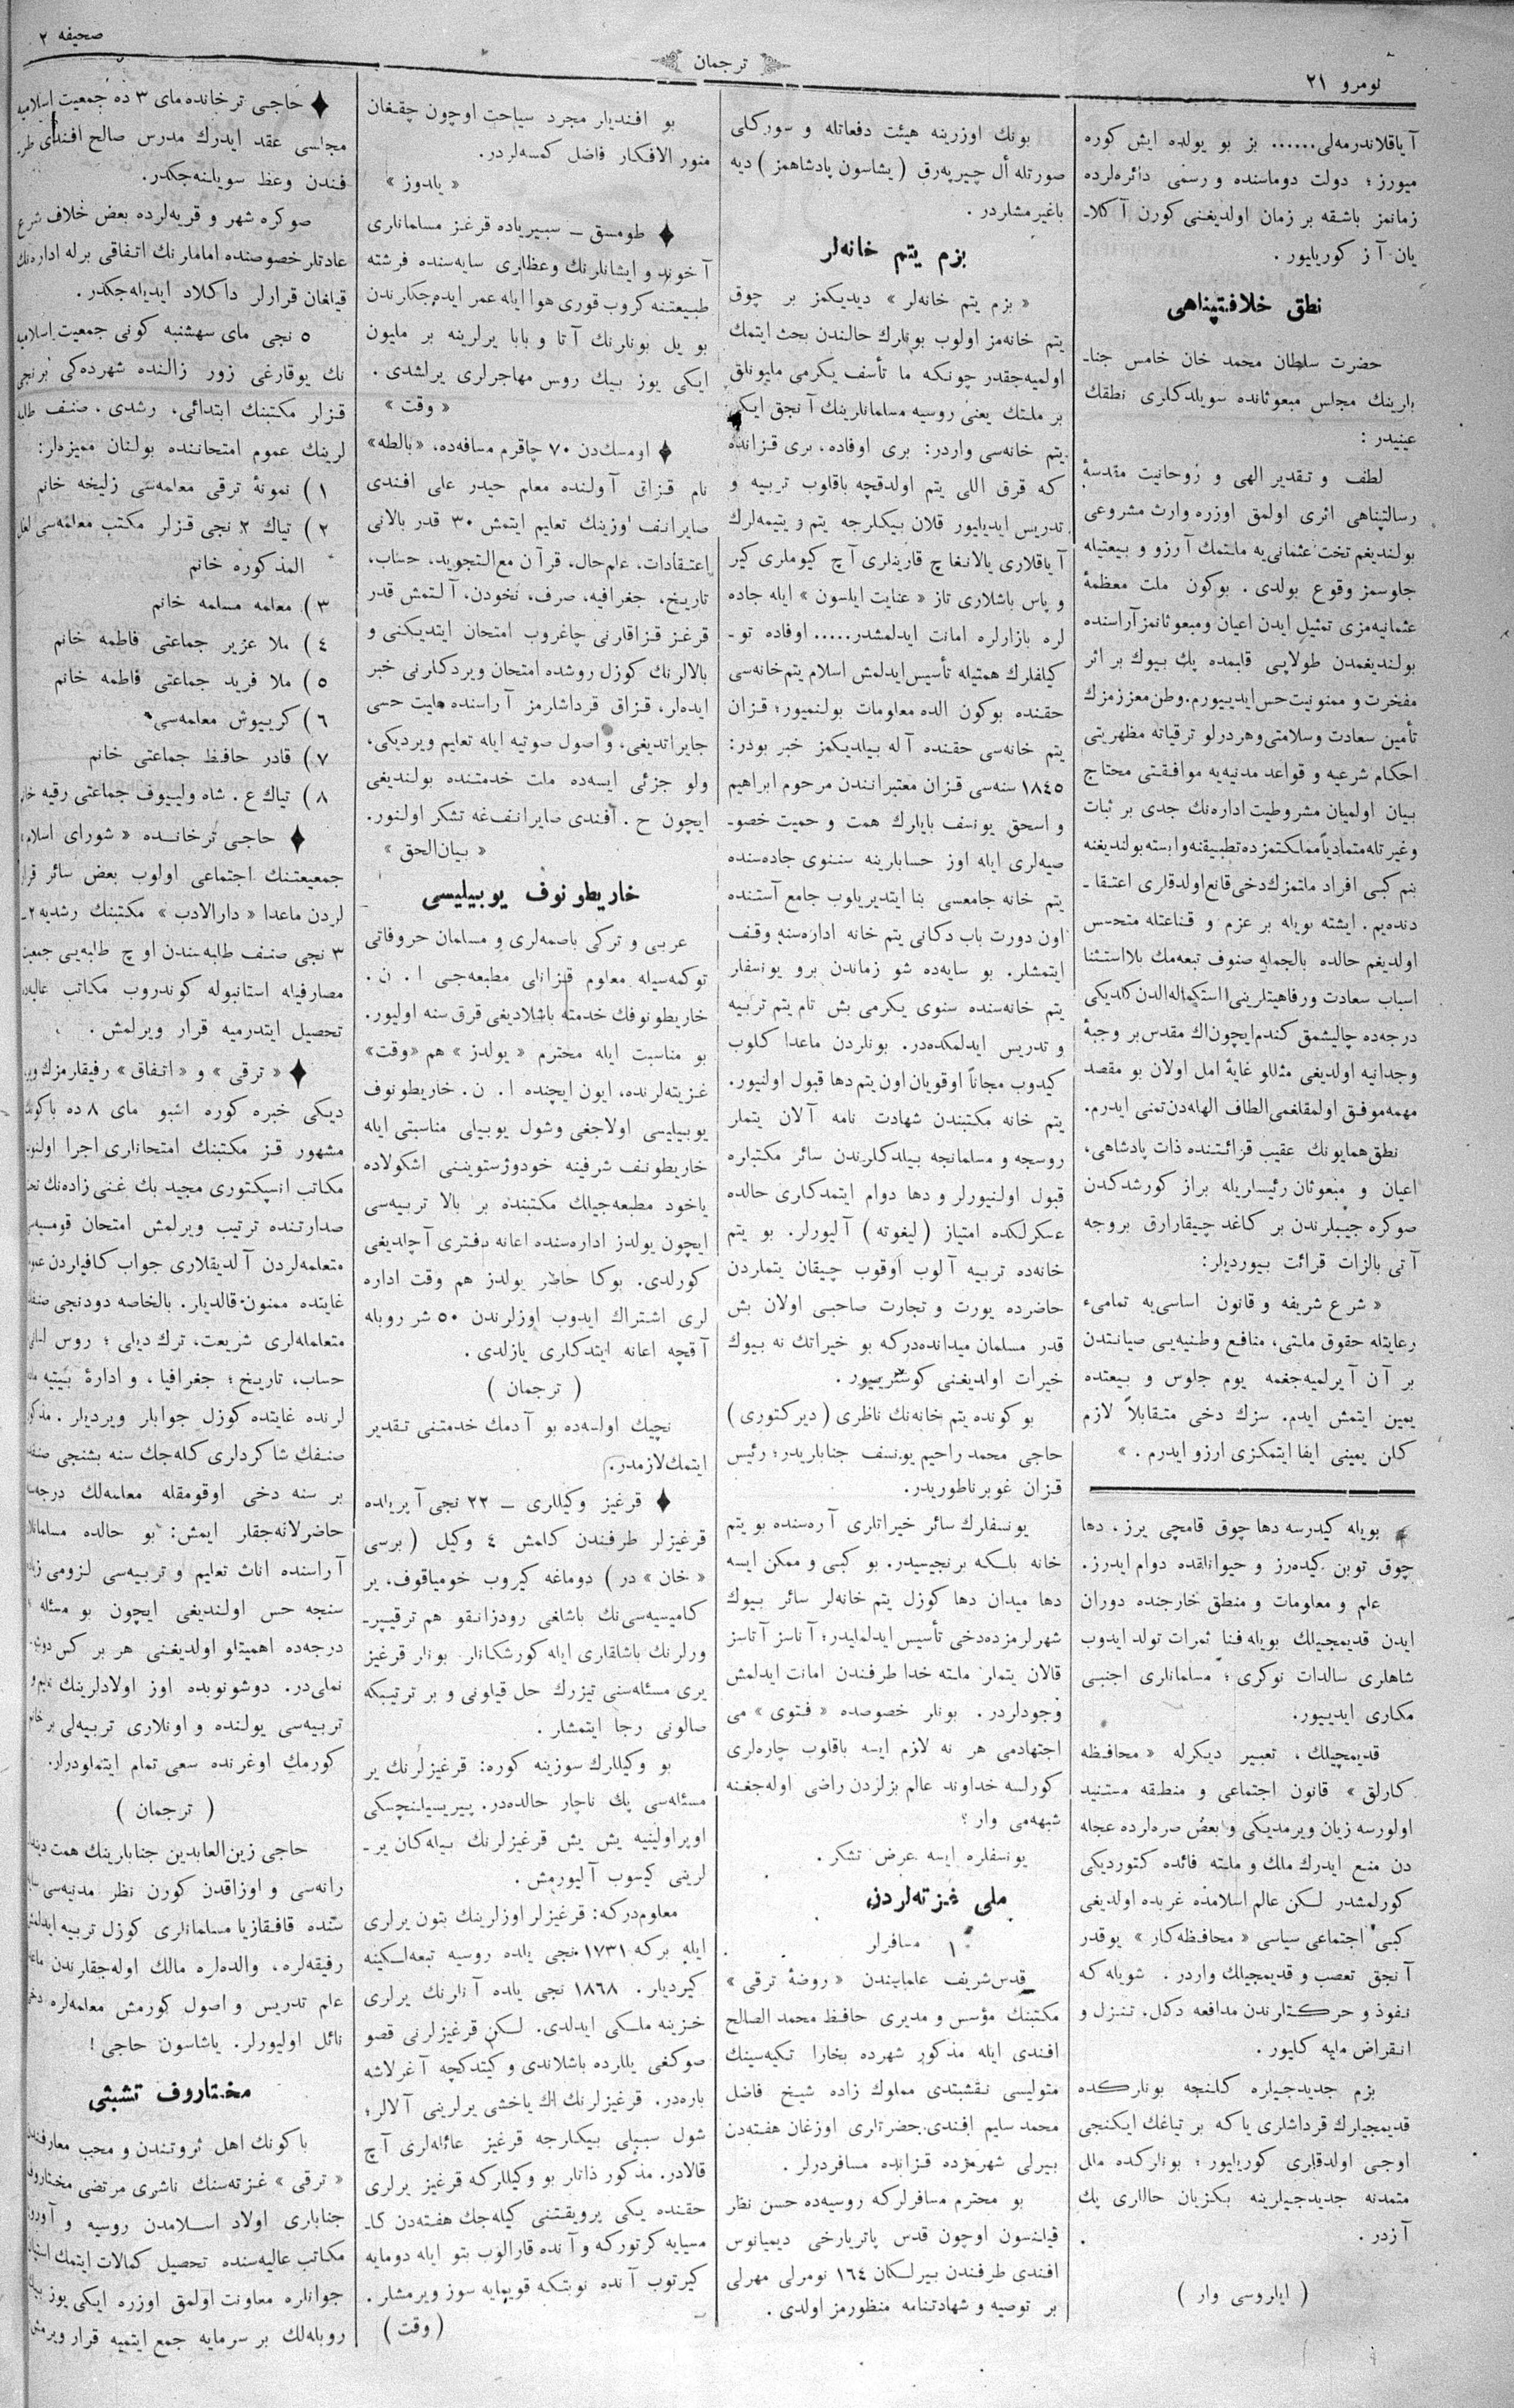 نومرو ٢١
ترجمان
صحيفه ٢
آياقلاندرمه‌لى...... بز بو يولده ايش كوره
ميورز؛ دولت دوماسنده و رسمى دائره‌لرده
زمانمز باشقه بر زمان اولديغنى كورن آكلا-
يان آز كوريليور.
نطق خلافتپناهى
حضرت سلطان محمد خان خامس جنا-
بارينك مجلس مبعوثانده سويلدكلرى نطقك
عينيدر:
لطف و تقدير الهى و روحانيت مقدسهٔ
رسالتپناهى اثرى اولمق اوزره وارث مشروعى
بولنديغم تخت عثمانى‌يه ملتمك آرزو و بيعتيله
جلوسمز وقوع بولدى. بوكون ملت معظمهٔ
عثمانيه‌مزى تمثيل ايدن اعيان ومبعوثانمزآراسنده
بولنديغمدن طولايى قلبمده پك بيوك بر اثر
مفخرت و ممنونيت حس ايدييورم. وطن معززمزك
تأمين سعادت وسلامتى وهردرلو ترقياته مظهريتى
احكام شرعيه و قواعد مدنيه‌يه موافقتى محتاج
بيان اولميان مشروطيت اداره‌نك جدى بر ثبات
وغيرتله متمادياً مملكتمزده تطبيقنه وابسته بولنديغنه
بنم كبى افراد ملتمزك دخى قانع اولدقلرى اعتقا-
دنده‌يم. ايشته بويله بر عزم و قناعتله متحسس
اولديغم حالده بالجمله صنوف تبعه‌مك بلااستثنا
اسباب سعادت ورفاهيتلرينى استكماله الدن كلديكى
درجه‌ده چاليشمق كندم ايچون اك مقدس بر وجيبهٔ
وجدانيه اولديغى مثللو غايهٔ امل اولان بو مقصد
مهمه موفق اولمقلغمى الطاف الهيه‌دن تمنى ايدرم.
نطق همايونك عقيب قرائتنده ذات پادشاهى،
اعيان و مبعوثان رئيسلريله براز كورشدكدن
صوكره جيبلرندن بر كاغد چيقارارق بروجه
آتى بالذات قرائت بيورديلر:
« شرع شريفه و قانون اساسى‌يه تمامىء
رعايتله حقوق ملتى، منافع وطنيه‌يى صيانتدن
بر آن آيرلميه‌جغمه يوم جلوس و بيعتده
يمين ايتمش ايدم. سزك دخى متقابلاً لازم
كلن يمينى ايفا ايتمكزى ارزو ايدرم. »
بويله كيدرسه دها چوق قامچى يرز، دها
چوق توبن كيده‌رز و حيوانلقده دوام ايدرز.
علم و معلومات و منطق خارجنده دوران
ايدن قديمجيلك بويله فنا ثمرات تولد ايدوب
شاهلرى سالدات نوكرى؛ مسلمانلرى اجنبى
مكارى ايدييور.
قديمچيلك، تعبير ديكرله « محافظه
كارلق » قانون اجتماعى و منطقه مستنيد
اولورسه زيان ويرمديكى و بعض صره‌لرده عجله
دن منع ايدرك ملك و ملته فائده كتورديكى
كورلمشدر لكن عالم اسلامده غربده اولديغى
كبى اجتماعى سياسى « محافظه‌كار » يوقدر
آنجق تعصب و قديمجيلك واردر. شويله كه
نفوذ و حركتلرندن مدافعه دكل، تنزل و
انقراض مليه كليور.
بزم جديدجيلره كلنچه بونلركده
قديمجيلرك قرداشلرى ياكه بر تياغك ايكنجى
اوجى اولدقلرى كوريليور؛ بونلركده ملل
متمدنه جديدجيلرينه بكزيان حاللرى پك
آزدر.
( ايلروسى وار )
بونك اوزرينه هيئت دفعاتله و سوركلى
صورتله أل چيرپه‌رق ( يشاسون پادشاهمز ) ديه
باغيرمشلردر.
بزم يتم خانه‌لر
« بزم يتم خانه‌لر » ديديكمز بر چوق
يتم خانه‌مز اولوب بونلرك حالندن بحث ايتمك
اولميه‌جقدر چونكه مأ تأسف يكرمى مليونلق
بر ملتك يعنى روسيه مسلمانلرينك آنجق ايكى
يتم خانه‌سى واردر: برى اوفاده، برى قزانده
كه قرق اللى يتم اولدقچه باقلوب تربيه و
تدريس ايديليور قلان بيكلرجه يتم و يتيمه‌لرك
آياقلارى يالانغاچ قارينلرى آچ كيوملرى كير
و پاس باشلارى تاز « عنايت ايلسون » ايله جاده
لره بازارلره امانت ايدلمشدر..... اوفاده تو-
كيلفلرك همتيله تأسيس ايدلمش اسلام يتم‌خانه‌سى
حقنده بوكون الده معلومات بولنميور؛ قزان
يتم خانه‌سى حقنده آله بيلديكمز خبر بودر:
١٨٤٥ سنه‌سى قزان معتبرانندن مرحوم ابراهيم
و اسحق يونسف بايلرك همت و حميت خصو-
صيه‌لرى ايله اوز حسابلرينه سننوى جاده‌سنده
يتم خانه جامعسى بنا ايتديريلوب جامع آستنده
اون دورت باب دكانى يتم خانه اداره‌سنه وقف
ايتمشلر. بو سايه‌ده شو زماندن برو يونسفلر
يتم خانه‌سنده سنوى يكرمى بش تام يتم تربيه
و تدريس ايدلمكده‌در. بونلردن ماعدا كلوب
كيدوب مجاناً اوقويان اون يتم دها قبول اولنيور.
يتم خانه مكتبندن شهادت نامه آلان يتملر
روسجه و مسلمانجه بيلدكلرندن سائر مكتبلره
قبول اولنيورلر و دها دوام ايتمدكلرى حالده
عسكرلكده امتياز ( ليغوته ) آليورلر. بو يتم
خانه‌ده تربيه آلوب اوقوب چيقان يتملردن
حاضرده يورت و تجارت صاحبى اولان بش
قدر مسلمان ميدانده‌دركه بو خيراتك نه بيوك
خيرات اولديغنى كوستريييور.
بو كونده يتم خانه‌نك ناظرى ( ديركتورى )
حاجى محمد راحيم يونسف جنابلريدر؛ رئيس
قزان غوبرناطوريدر.
يونسفلرك سائر خيراتلرى آره‌سنده بو يتم
خانه بلكه برنجيسيدر. بو كبى و ممكن ايسه
دها ميدان دها كوزل يتم خانه‌لر سائر بيوك
شهرلرمزده‌دخى تأسيس ايدلمليدر؛ آناسز آتاسز
قالان يتملر ملته خدا طرفندن امانت ايدلمش
وجودلردر. بونلر خصوصده « فتوى » مى
اجتهادمى هر نه لازم ايسه باقلوب چاره‌لرى
كورلسه خداوند عالم بزلردن راضى اوله‌جغنه
شبهه‌مى وار؟
يونسفلره ايسه عرض تشكر.
ملى غزته‌لردن
١ مسافرلر
قدس‌شريف علمابندن « روضهٔ ترقى »
مكتبنك مؤسس و مديرى حافظ محمد الصالح
افندى ايله مذكور شهرده بخارا تكيه‌سينك
متوليسى نقشبتدى مملوك زاده شيخ فاضل
محمد سليم افندى حضرتلرى اوزغان هفته‌دن
بيرلى شهرمزده قزانده مسافردرلر.
بو محترم مسافرلركه روسيه‌ده حسن نظر
قيلنسون اوچون قدس پاتريارخى ديميانوس
افندى طرفندن بيرلكان ١٦٤ نومرلى مهرلى
بر توصيه و شهادتنامه منظورمز اولدى.
بو افنديلر مجرد سياحت اوچون چقغان
منور الافكار فاضل كمسه‌لردر.
« يلدوز »
طومسق — سبيرياده قرغز مسلمانلرى
آخوند و ايشانلرنك وعظلرى سايه‌سنده فرشته
طبيعتنه كروب قورى هوا ايله عمر ايده‌جكلرندن
بو يل بونلرنك آتا و بابا يرلرينه بر مليون
ايكى يوز بيك روس مهاجرلرى يرلشدى.
« وقت »
اومسك‌دن ٧٠ چاقرم مسافه‌ده، «بالطه»
نام قزاق آولنده معلم حيدر على افندى
صايرانف اوزينك تعليم ايتمش ٣٠ قدر بالانى
اعتقادات، علم‌حال، قرآن مع‌التجويد، حساب،
تاريخ، جغرافيه، صرف، نخودن، آلتمش قدر
قرغز قزاقلرنى چاغروب امتحان ايتديكنى و
بالالرنك كوزل روشده امتحان ويردكلرنى خبر
ايده‌لر، قزاق قرداشلرمز آراسنده مليت حسى
جايراتديغى، و اصول صوتيه ايله تعليم ويرديكى،
ولو جزئى ايسه‌ده ملت خدمتنده بولنديغى
ايچون ح. افندى صايرانف‌غه تشكر اولنور.
« بيان‌الحق »
خاريطونوف يوبيليسى
عربى و تركى باصمه‌لرى و مسلمان حروفاتى
توكمه‌سيله معلوم قزانلى مطبعه‌جى ا. ن.
خاريطونوفك خدمته باشلاديغى قرق سنه اوليور.
بو مناسبت ايله محترم « يولدز » هم «وقت»
غزيته‌لرنده، ايون ايچنده ا. ن. خاريطونوف
يوبيليسى اولاجغى وشول يوبيلى مناسبتى ايله
خاريطونف شرفينه خودوژستوينى اشكولاده
ياخود مطبعه‌جيلك مكتبنده بر بالا تربيه‌سى
ايچون يولدز اداره‌سنده اعانه دفترى آچلديغى
كورلدى. بوكا حاضر يولدز هم وقت اداره
لرى اشتراك ايدوب اوزلرندن ٥٠ شر روبله
آقچه اعانه ايتدكلرى يازلدى.
( ترجمان )
نچيك اولسه‌ده بو آدمك خدمتنى تقدير
ايتمك‌لازمدر.
قرغيز وكيللرى — ٢٢ نجى آپريلده
قرغيزلر طرفندن كلمش ٤ وكيل ( برسى
« خان » در ) دوماغه كيروب خومياقوف، ير
كاميسيه‌سى‌نك باشلغى رودزانقو هم ترقيپر-
ورلرنك باشلقلرى ايله كورشكانلر بونلر قرغيز
يرى مسئله‌سنى تيزرك حل قيلونى و بر ترتيبكه
صالونى رجا ايتمشلر.
بو وكيللرك سوزينه كوره: قرغيزلرنك ير
مسئله‌سى پك ناچار حالده‌در. پيريسيلنچسكى
اوپراولينيه يش يش قرغيزلرنك بيله‌كان ير-
لرينى كيسوب آليورمش.
معلوم‌دركه: قرغيزلر اوزلرينك بتون يرلرى
ايله بركه ١٧٣١ نجى يلده روسيه تبعه‌لكينه
كيرديلر. ١٨٦٨ نجى يلده آنلرنك يرلرى
خزينه ملكى ايدلدى. لكن قرغيزلرنى قصو
صوكغى يللرده باشلاندى و كيتدكچه آغرلاشه
باره‌در. قرغيزلرنك اك ياخشى يرلرينى آلالر؛
شول سببلى بيكلرجه قرغيز عائله‌لرى آچ
قالادر. مذكور ذاتلر بو وكيللركه قرغيز يرلرى
حقنده يكى پرويقتنى كيله‌جك هفته‌دن كا-
ميسيايه كرتورکه و آنده قارالوب بتو ايله دومايه
كيرتوب آنده نوبتكه قويمايه سوز ويرمشلر.
( وقت )
حاجى ترخانده ماى ٣ ده جمعيت اسلاميه
مجلسى عقد ايدرك مدرس صالح افندى طر
فندن وعظ سويلنه‌جكدر.
صوكره شهر و قريه‌لرده بعض خلاف شرع
عادتلر خصوصنده امامارنك اتفاقى برله اداره‌نك
قيلغان قرارلر داكلاد ايديله‌جكدر.
٥ نجى ماى سه‌شنبه كونى جمعيت اسلاميه
نك يوقارغى زور زالنده شهرده‌كى برنجى
قزلر مكتبنك ابتدائى، رشدى، صنف طلبه
لرينك عموم امتحاننده بولنان مميزه‌لر:
١) نمونهٔ ترقى معلمه‌سى زليخه خانم
٢) تياك ٢ نجى قزلر مكتب معلمه‌سى
المذكوره خانم
٣) معلمه مسلمه خانم
٤) ملا عزير جماعتى فاطمه خانم
٥) ملا فريد جماعتى فاطمه خانم
٦) كريبوش معلمه‌سى
٧) قادر حافظ جماعتى خانم
٨) تياك ع. شاه ولييوف جماعتى رقيه
حاجى ترخانده « شوراى اسلام»
جمعيعتنك اجتماعى اولوب بعض سائر قرار
لردن ماعدا « دارالادب » مكتبنك رشديه ٢-
٣ نجى صنف طلبه‌سندن اوچ طلبه‌يى جمعيت
مصارفيله استانبوله كوندروب مكاتب عاليه‌ده
تحصيل ايتدرميه قرار ويرلمش.
« ترقى » و « اتفاق » رفيقلرمزك وير
ديكى خبره كوره اشبو ماى ٨ ده باكونك
مشهور قز مكتبنك امتحانلرى اجرا اولنوب
مكاتب انسپكتورى مجيد بك غنى زاده‌نك تحت
صدارتنده ترتيب ويرلمش امتحان قومسيه‌سى
متعلمه‌لردن آلديقلارى جواب كافيلردن عموم
غايتده ممنون قالديلر. بالخاصه دودنجى صنف
متعلمه‌لرى شريعت، ترك ديلى؛ روس لسانى
حساب، تاريخ؛ جغرافيا، و ادارهٔ بيتيه
لرنده غايتده كوزل جوابلر ويرديلر. مذكور
صنفك شاكردلرى كله‌جك سنه بشنجى صنفده
بر سنه دخى اوقومقله معلمه‌لك درجه‌سنه
حاضرلانه‌جقلر ايمش: بو حالده مسلمانلر
آراسنده اناث تعليم و تربيه‌سى لزومى زياده
سنجه حس اولنديغى ايچون بو مسئله
درجه‌ده اهميتلو اولديغنى هر بر كس دوشو-
نملى‌در. دوشونوبده اوز اولادلرينك تعليم و
تربيه‌سى يولنده و اونلارى تربيه‌لى بر خانم
كورمك اوغرنده سعى تمام ايتملودرلر.
( ترجمان )
حاجى زين‌العابدين جنابلرينك همت دينه
رانه‌سى و اوزاقدن كورن نظر مدنيه‌سى سايه
سنده قافقازيا مسلمانلرى كوزل تربيه ايدلمش
رفيقه‌لره، والده‌لره مالك اوله‌جقلرندن ماعدا
علم تدريس و اصول كورمش معلمه‌لره دخى
نائل اوليورلر. ياشاسون حاجى!
مختاروف تشبثى
باكونك اهل ثروتندن و محب معارفندن
« ترقى » غزته‌سنك ناشرى مرتضى مختاروف
جنابلرى اولاد اسلامدن روسيه و آوروپا
مكاتب عاليه‌سنده تحصيل كمالات ايتمك استيان
جوانلره معاونت اولمق اوزره ايكى يوز بيك
روبله‌لك بر سرمايه جمع ايتميه قرار ويرمش